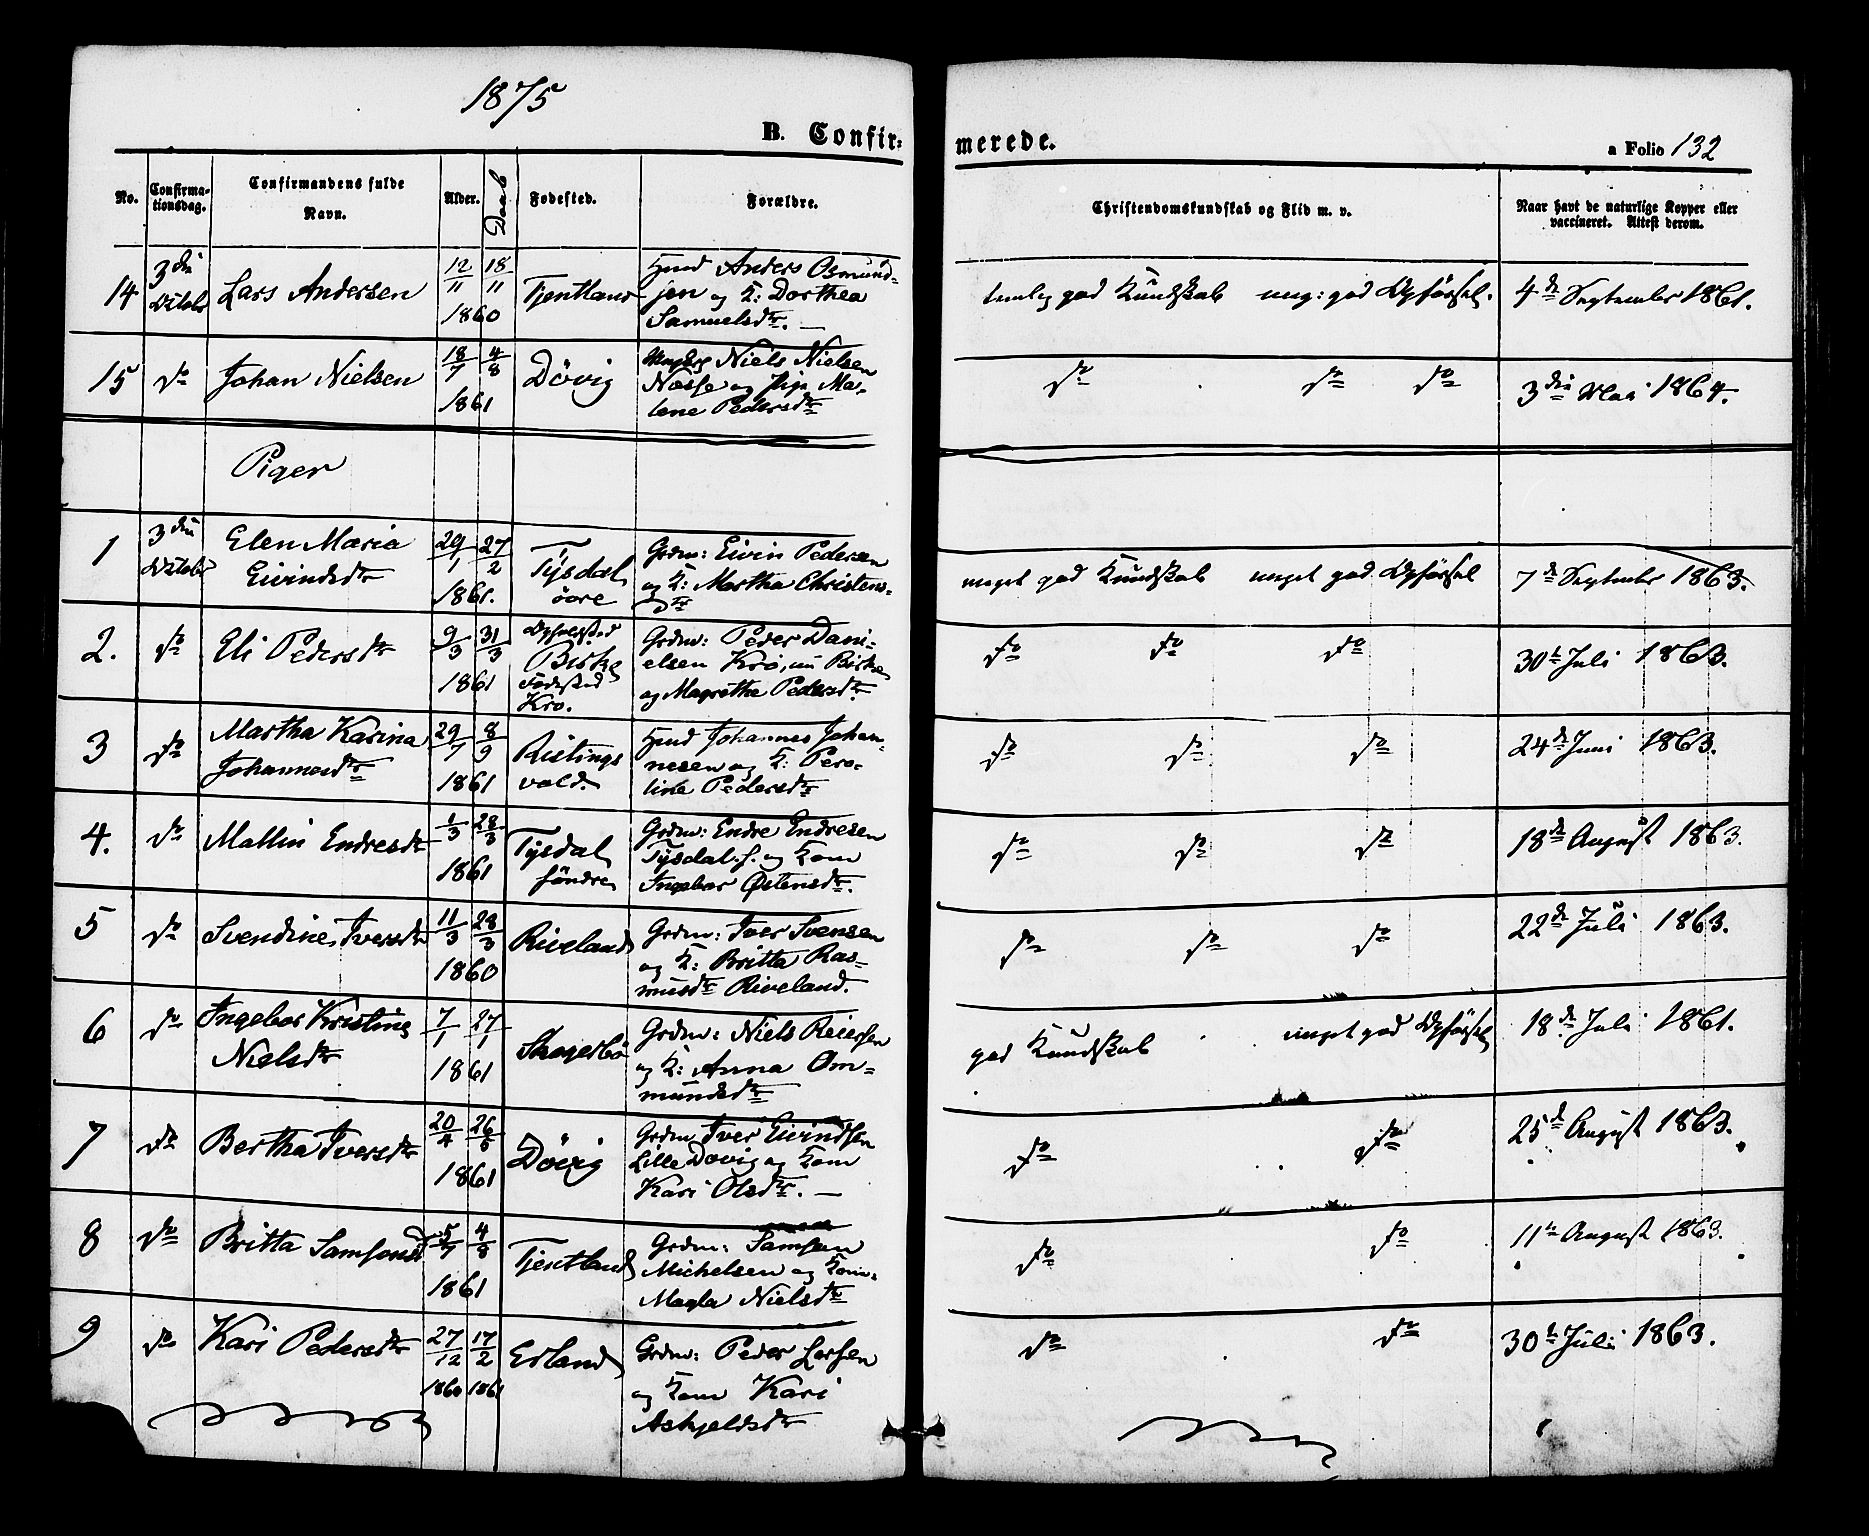 1875
B. Confir-
merede.
a Folio 132
No.
Confirma-
tionsdag.
Confirmandens fulde
Navn.
Alder.
Daab
Fødested.
Forældre.
Christendomskundskab og Flid m. v.
Naar havt de naturlige Kopper eller
vaccineret. Attest derom.
14 3die Lars Andersen 12/11 18/11 1860 Tjentland
Anders Osmund-
sen og K: Dorthea
Samuelsdtr. —
god Kundskab meg: god Opførsel. 4de September 1861.
15 do Johan Nielsen 18/7 4/8 1861 Dövig
Niels Nielsen
Næsse og Ma-
lene Pedersdtr
do do do 3die Mai 1864.
Piger
1 3die Oktober Elen Maria
Eivindsdtr
29/1 27/2 1861. Tysdal
öore
Grdm: Eivin Pedersen
og K: Martha Christens-
dtr
meget god Kundskab meget god Opførsel 7de September 1863.
2. do Eli Pedersdtr 9/3 31/3 1861
Opholdsted
Birke
Födested
Kro.
Grdm: Peder Dani-
elsen Krö, nu Birke
og Magrethe Pedersdtr.
do do do 30te Juli 1863.
3 do Martha Karina
Johannesdtr
29/7 8/9 1861 Ristings
vold.
Johannes Johan-
nesen og K: Pero-
line Pedersdtr
do do do 24de Juni 1863.
4. do Mallin Endresdtr 1/3 28/3 1861 Tysdal
söndre
Grdm: Endre Endresen
Tysdal. s. og Kone
Ingebor Østensdtr.
do do do 18de August 1863.
5 do Svendine Iversdtr 11/3 28/3 1860 Riveland
Grdm: Iver Svensen
og K: Britta Ras-
musdtr Riveland.
do do do 22de Juli 1863.
6 do Ingebor Kristine
Nielsdtr
7/1 27/1 1861 Skogerbö
Grdm: Niels Reiersen
og K: Anna Om-
mundsdtr
god Kundskab meget god Opførsel 18de Juli 1861.
7 do Bertha Iversdtr 20/4 26/5 1861 Dövig
Grdm Iver Eivindsen
Lille Dövig og Kone
Kari Olsdtr. —
do do 25de August 1863.
8 do Britta Samsonsd 5/7 4/8 1861 Tjentland
Grdm: Samson
Michelsen og Kone
Magla Nielsdtr
do do 11te August 1863.
9 do Kari Pedersdtr 27/12 17/2 1860 1861 Erland
Grdm: Peder Larsen
og Kone Kari
Askjeldsdtr
do do 30te Juli 1863.